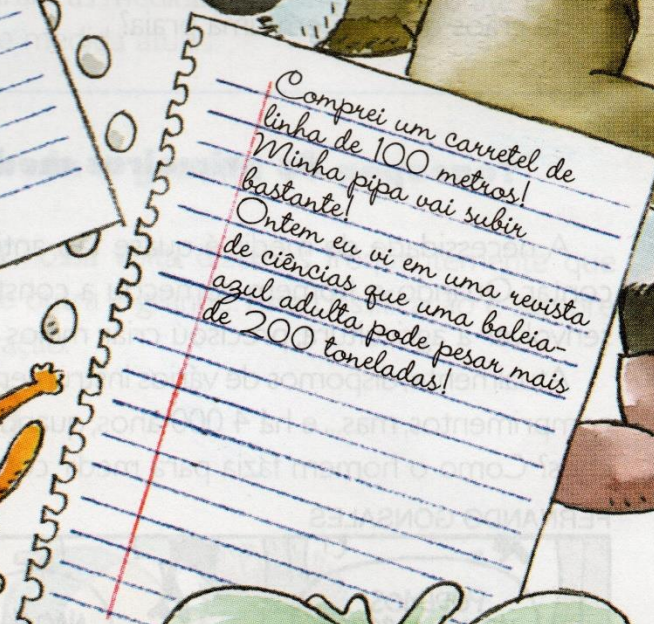 Comprei um carretel de
linha de 100 metros!
Minha pipa vai subir
bastante!
Ontem eu vi em uma revista
de ciências que uma baleia-
azul adulta pode pesar mais
de 200 toneladas!